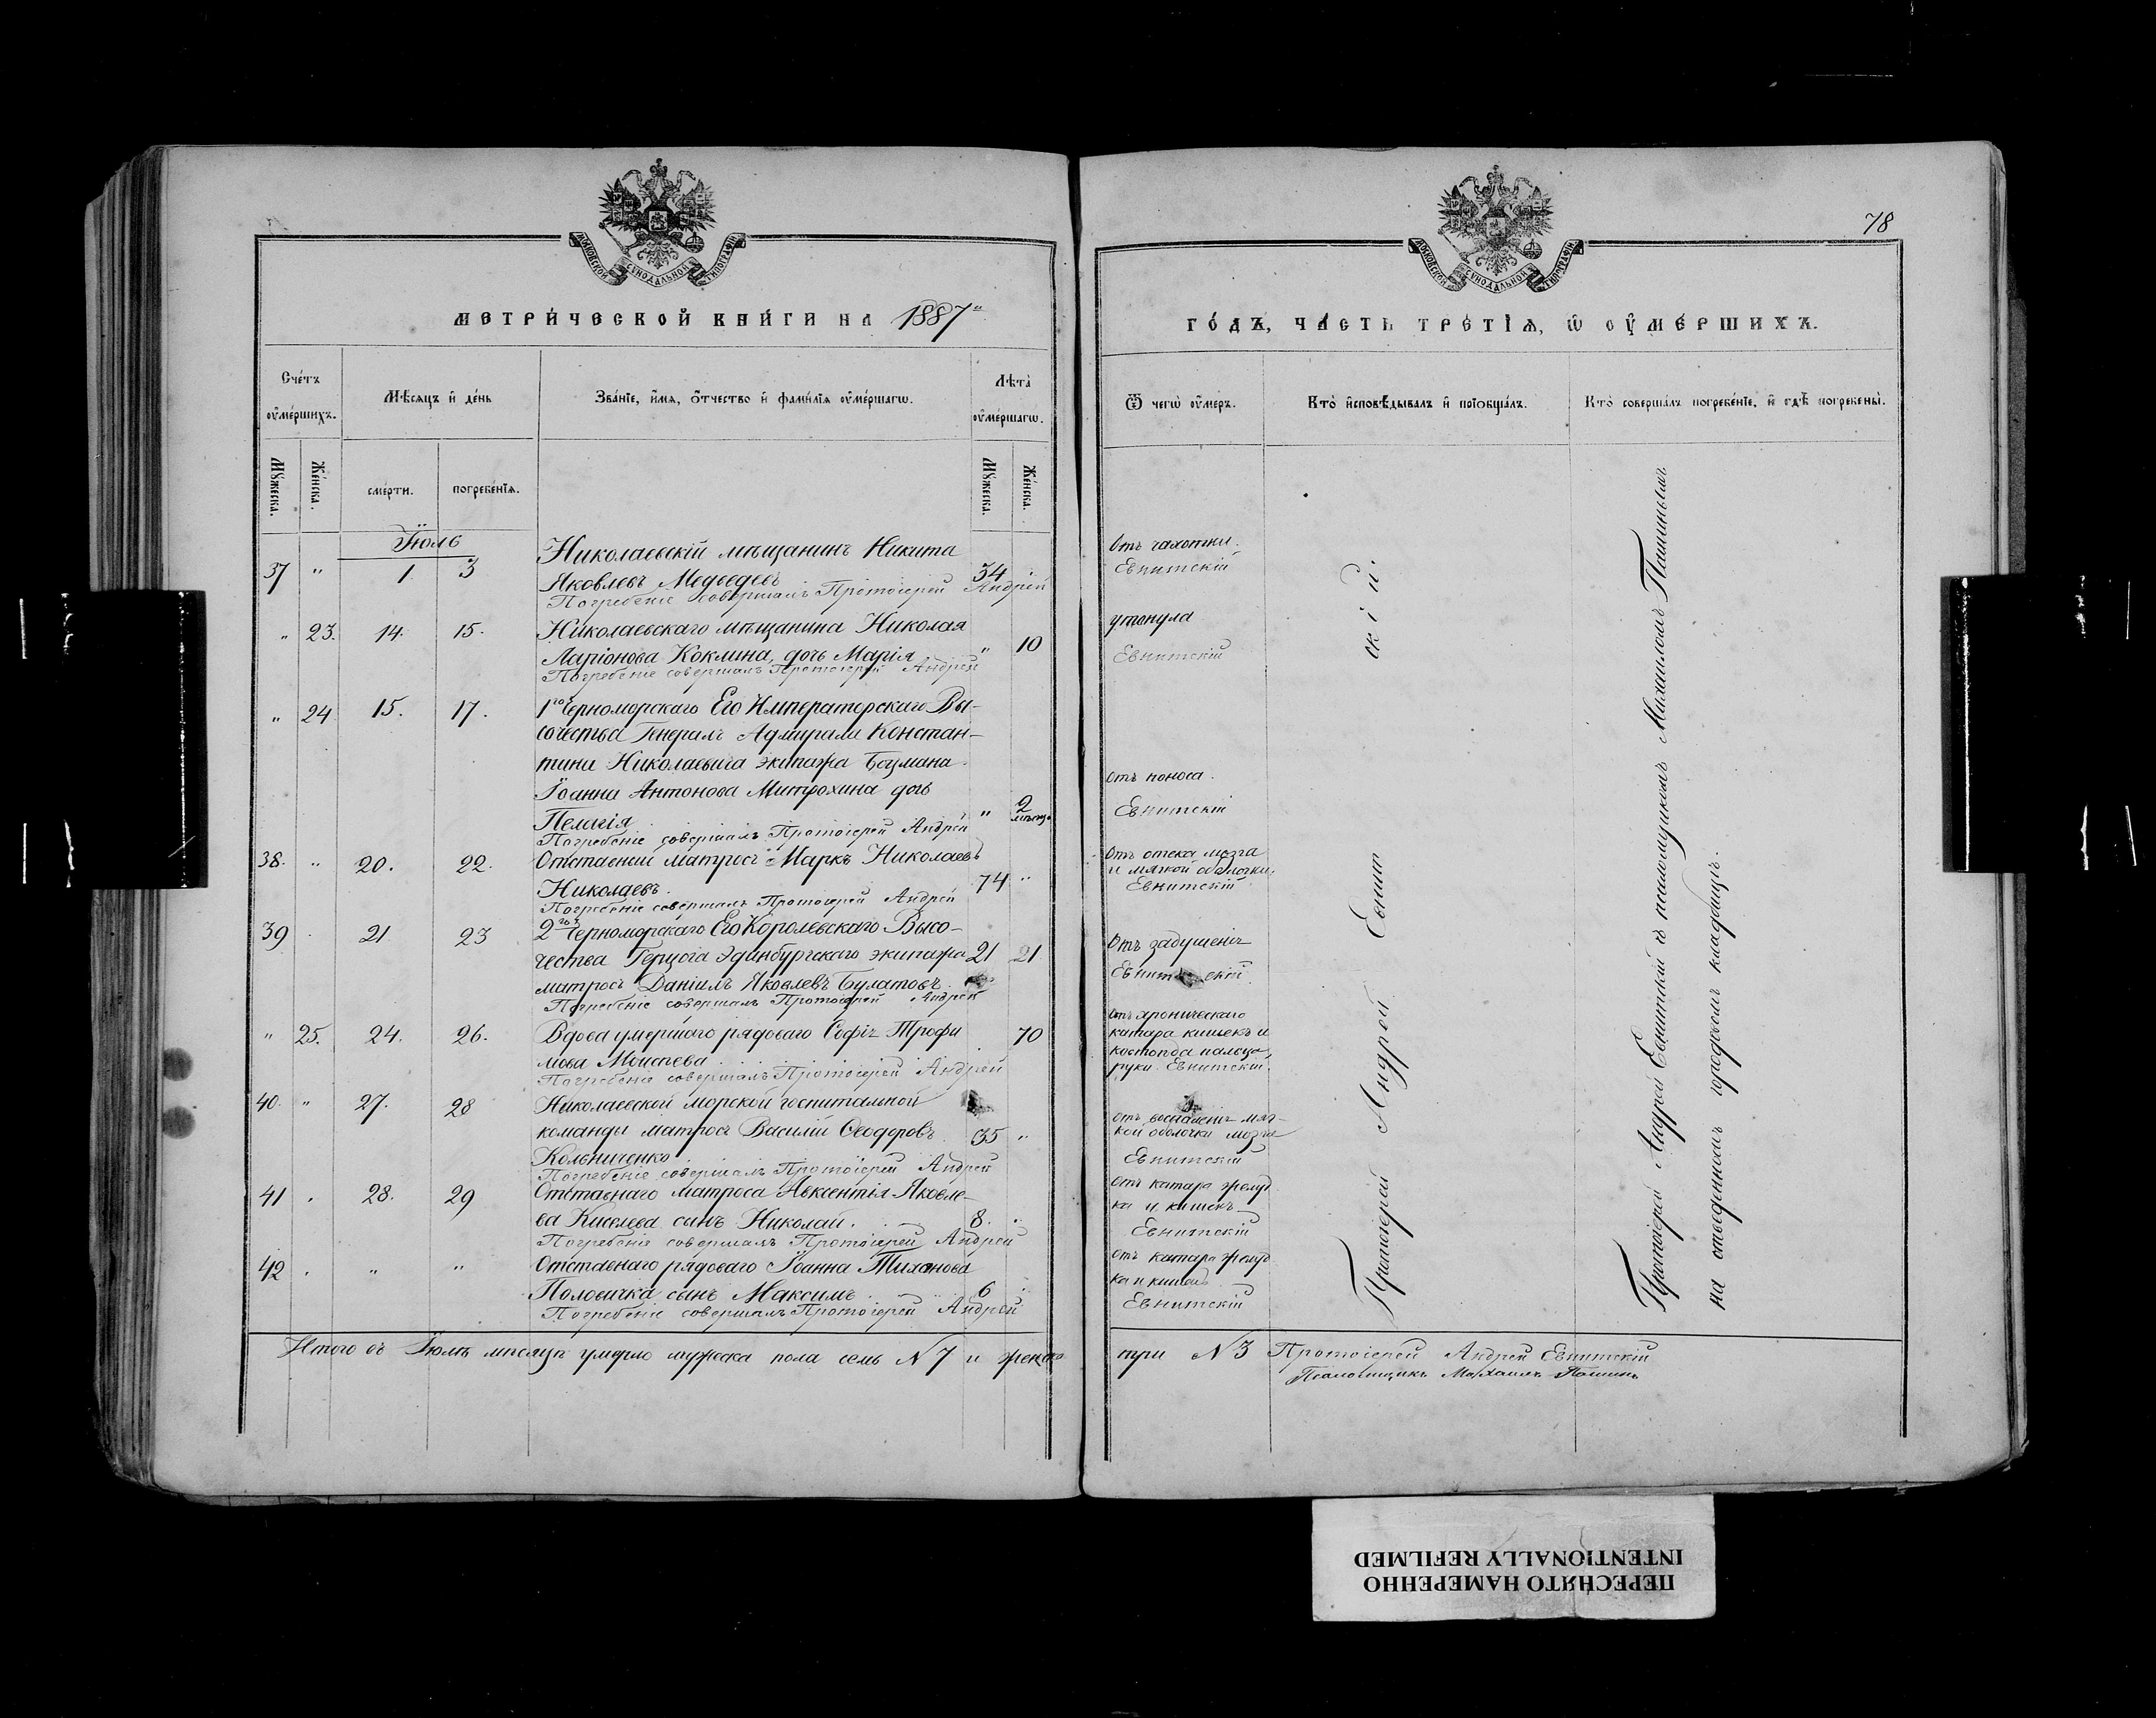 78
МОСКОВСКОЙ СУНОДАЛЬНОЙ ТИПОГРАФІИ
МОСКОВСКОЙ СУНОДАЛЬНОЙ ТИПОГРАФІИ
МЕТРИ́ЧЕСКОЙ КНИ́ГИ НА 1887
ГО́ДЪ, ЧА́СТЬ ТРЕ́ТІѦ, Ѡ ОУМЕ́РШИХЪ.
Сче́тъ оуме́ршихъ.
Мѣ́сяцъ и де́нь
Зва́нїе, и́мя, о́тчество и фами́лїя оуме́ршагѡ.
Лѣта̀ оуме́ршагѡ.
Ѿ чегѡ̀ оу́меръ.
Кто̀ исповѣ́дывалъ и прїобща́лъ.
Кто̀ соверша́лъ погребе́нїе, и гдѣ̀ погребены̀.
Мꙋ́жеска.
Же́нска.
сме́рти.
погребе́нїѧ.
Мꙋ́жеска.
Же́нска.
Іюль
37 " 1 3 Николаевскій мѣщанинъ Никита
Яковлевъ Медведевъ 34
Погребеніе совершалъ Протоіерей Андрей
Отъ чахотки.
Евнитскій
" 23. 14. 15. Николаевскаго мѣщанина Николая
Ларіонова Коклина, дочь Марія " 10
Погребеніе совершалъ Протоіерей Андрей
утонула
Евнитскій
" 24 15. 17. 1го Черноморскаго Его Императорскаго Вы-
сочества Генералъ Адмирала Констан-
тина Николаевича экипажа Боцмана
Іоанна Антонова Митрохина дочь
Пелагія " 2 мѣсяца
Погребеніе совершалъ Протоіерей Андрей
отъ поноса.
Евнитскій
38. " 20. 22. Отставный матросъ Маркъ Николаевъ
Николаевъ. 74 "
Погребеніе совершалъ Протоіерей Андрей
Отъ отека мозга
и мягкой оболочки.
Евнитскій
39 21 23 2го Черноморскаго Его Королевскаго Высо-
чества Герцога Эдинбургскаго экипажа 21 21
матросъ Даніилъ Яковлевъ Булатовъ.
Погребеніе совершалъ Протоіерей Андрей
Отъ задушенія
Евнитскій
" 25. 24. 26. Вдова умершаго рядоваго Софія Трофи
мова Моисѣева 70
Погребеніе совершалъ Протоіерей Андрей
отъ хроническаго
катара кишекъ и
костоѣда пальца
руки. Евнитскій.
40. " 27. 28 Николаевской морской госпитальной
команды матросъ Василій Ѳеодоровъ 35 "
Кольниченко
Погребеніе совершалъ Протоіерей Андрей
отъ воспаленія мяг-
кой оболочки мозга
Евнитскій
41 28. 29 Отставнаго матроса Авксентія Яковле-
ва Киселева сынъ Николай. 8.
Погребеніе совершалъ Протоіерей Андрей
отъ катара желуд
ка и кишекъ
Евнитскій
42 " " Отставнаго рядоваго Іоанна Тиханова
Половичка сынъ Максимъ 6
Погребеніе совершалъ Протоіерей Андрей
отъ катара желуд
ка и кишекъ
Евнитскій
Протоіерей Андрей Евнитскій.
Протоіерей Андрей Евнитскій съ псаломщикомъ Михаиломъ Пашинымъ
на отведенномъ городомъ кладбищѣ.
Итого въ Іюлѣ мѣсяцѣ умерло мужеска пола семь N 7 и женска
три N 3 Протоіерей Андрей Евнитскій
Псаломщикъ Михаилъ Пашинъ
ПЕРЕСНЯТО НАМЕРЕННО
INTENTIONALLY REFILMED